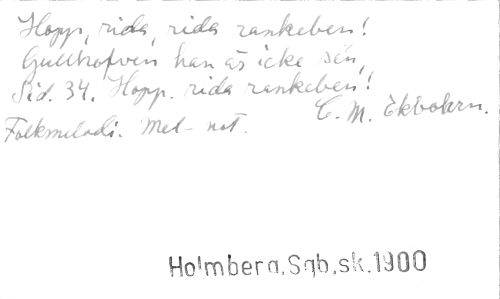 Hopp, rida, rida rankeben!
Gullhofven han är icke sén,
Sid. 34. Hopp. rida rankeben!
C. M. Ekbohrn.
Folkmelodi. Mel-not.
Holmberg, Sgb, sk. 1900